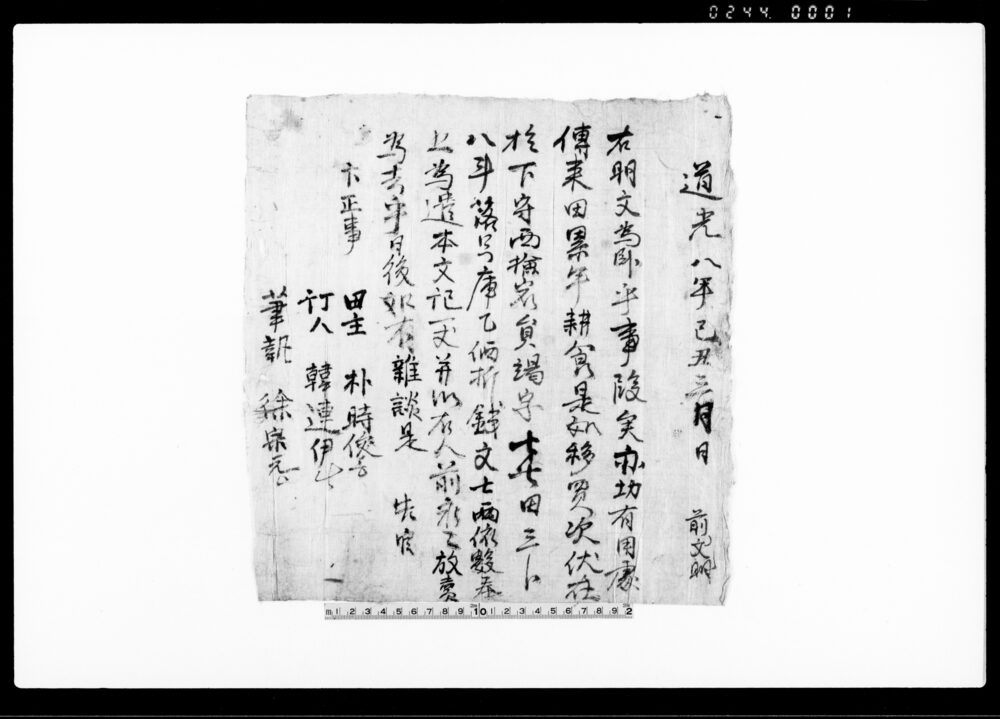 0244. 0001
道光八年己丑三月日 前文明
右明文爲臥乎事段矣亦切有用處
傳來田累年耕食是如移買次伏在
於下寺西損岩員竭字田三卜
八斗落只庫乙価折錢文七兩依數捧
上爲遣本文記一丈幷以右人前永永放賣
爲去乎日後如有雜談是
卞正事
田主 朴時俊
訂人 韓連伊
筆執 徐宗元
m 1 2 3 4 5 6 7 8 9 10 1 2 3 4 5 6 7 8 9 2